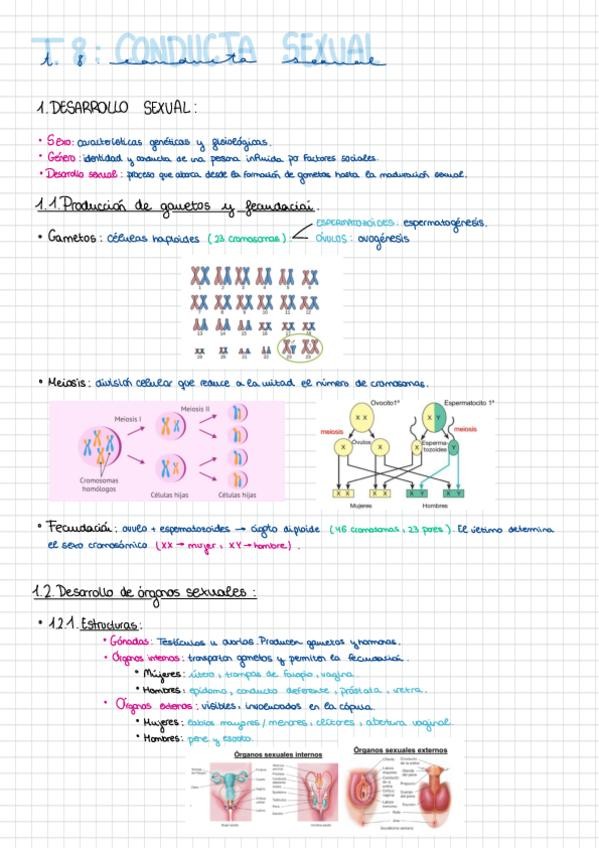 T. 8: CONDUCTA SEXUAL
t. 8 conducta sexual
1. DESARROLLO SEXUAL:
• Sexo: características genéticas y fisiológicas.
• Género: identidad y conducta de una persona influida por factores sociales.
• Desarrollo sexual: proceso que abarca desde la formación de gametos hasta la maduración sexual.
1.1. Producción de gametos y fecundación.
ESPERMATOZOIDES: espermatogénesis.
• Gametos: células haploides (23 cromosomas)
ÓVULOS: ovogénesis
• Meiosis: división celular que reduce a la mitad el número de cromosomas.
Meiosis I
Meiosis II
Cromosomas homólogos
Células hijas
Células hijas
Ovocito 1º
Espermatocito 1º
X X
X Y
meiosis
meiosis
X
Óvulos
X
X
Esperma-
tozoides
Y
X X
X X
X Y
X Y
Mujeres
Hombres
• Fecundación: ovulo + espermatozoides → cigoto diploide (46 cromosomas, 23 pares). El último determina
el sexo cromosómico (XX → mujer, XY → hombre).
1.2. Desarrollo de órganos sexuales:
• 1.2.1. Estructuras:
• Gónadas: Testículos u ovarios. Producen gametos y hormonas.
• Órganos internos: transportan gametos y permiten la fecundación.
• Mujeres: útero, trompas de falopio, vagina.
• Hombres: epídimo, conducto deferente, próstata, uretra.
• Órganos externos: visibles, involucrados en la cópula.
• Mujeres: labios mayores/menores, clítores, abertura vaginal.
• Hombres: pene y escroto.
Órganos sexuales internos
Órganos sexuales externos